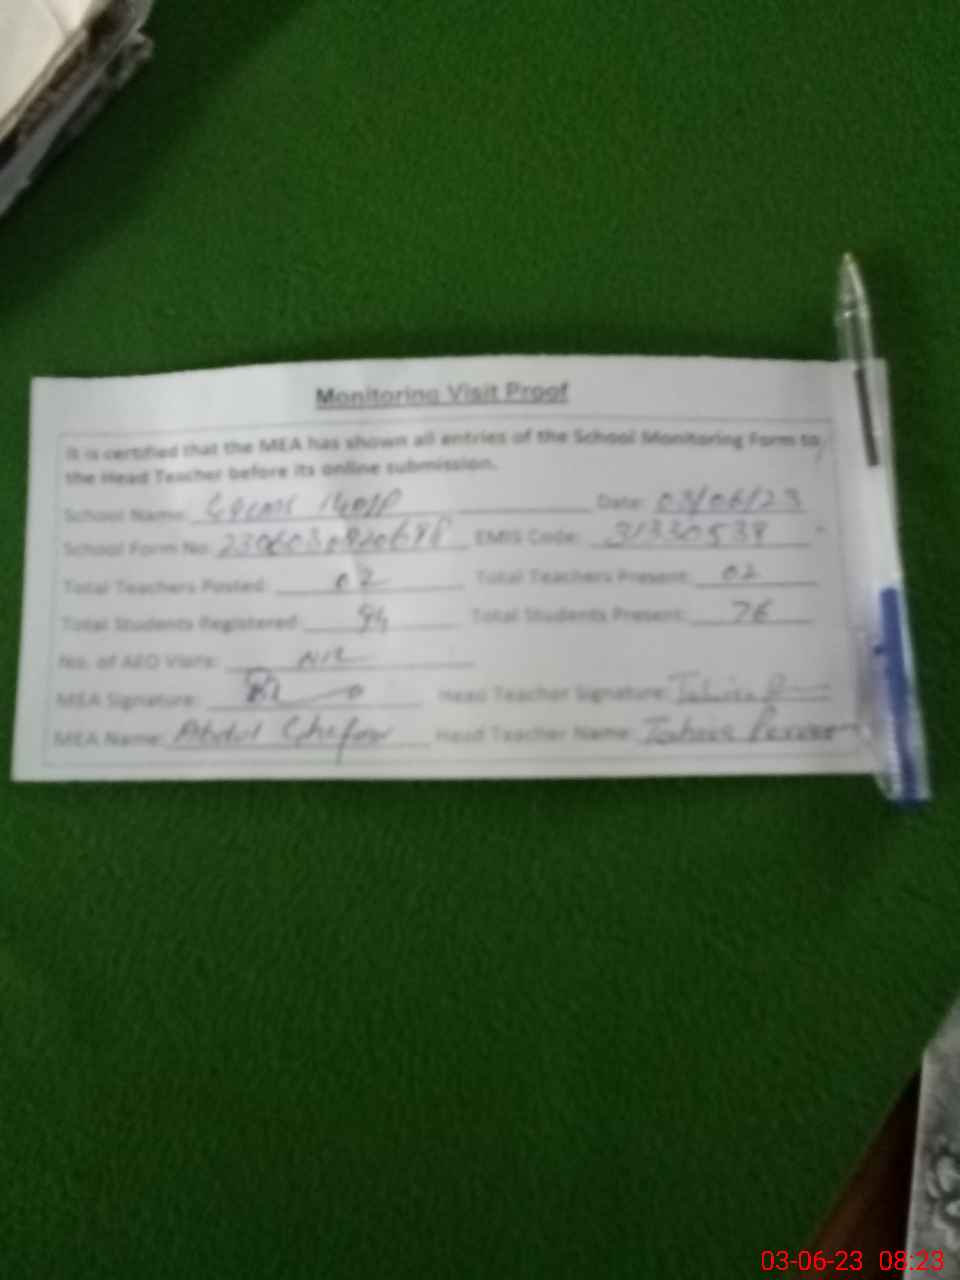 Monitoring Visit Proof
It is certified that the MEA has shown all entries of the School Monitoring Form to
the Head Teacher before its online submission.
School Name: Date: 03/06/23
School Form No: EMIS Code: 31330538
Total Teachers Posted: 02 Total Teachers Present: 02
Total Students Registered: 94 Total Students Present: 76
No. of AEO Visits: Nil
MEA Signature: Head Teacher Signature:
MEA Name: Abdul Ghafoor Head Teacher Name:
03-06-23 08:23